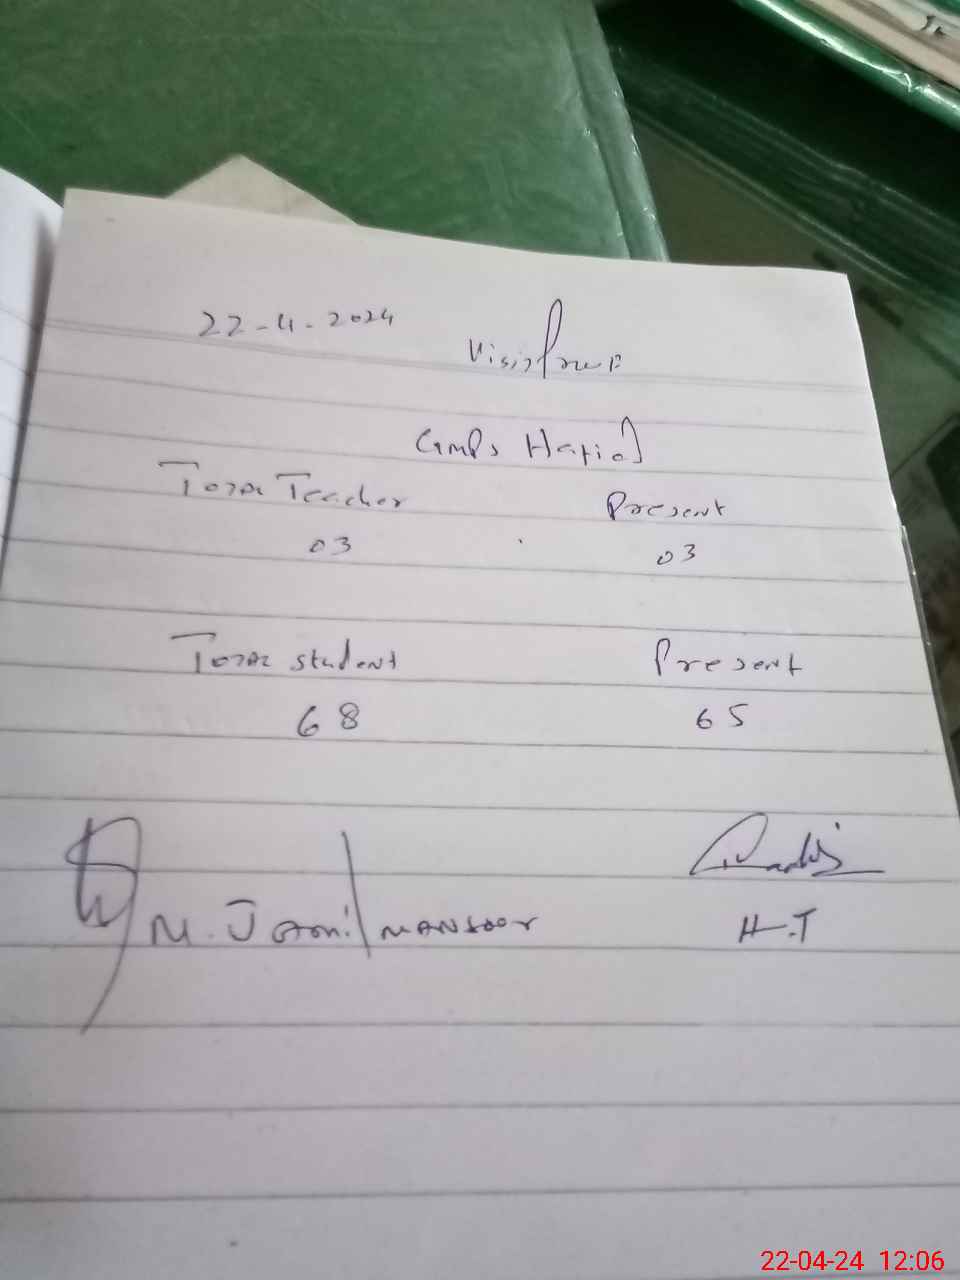 22-4-2024
Visit
GMPS
Total Teacher Present
03 03
Total student Present
68 65
M. Jamil Mansoor
H.T
22-04-24 12:06